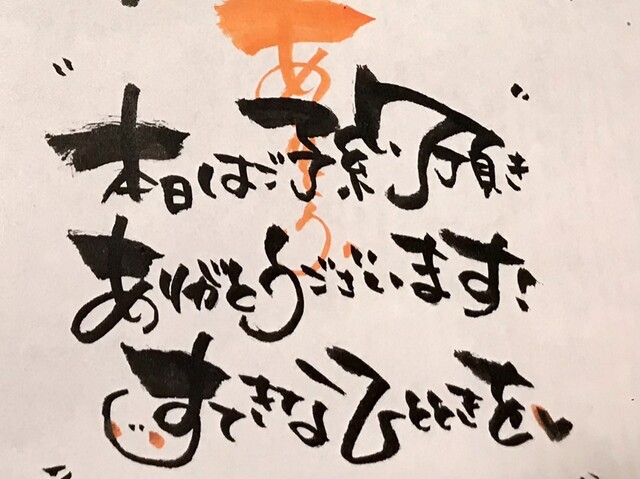 本日はご予約頂き
ありがとうございます!
すてきなひとときを